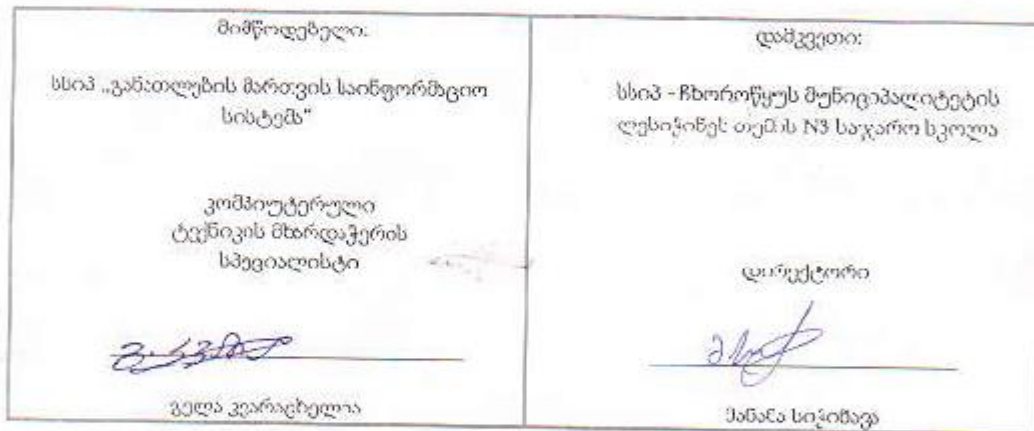 მიმწოდებელი:
სსიპ „განათლების მართვის საინფორმაციო
სისტემა“
კომპიუტერული
ტექნიკის მხარდაჭერის
სპეციალისტი
გელა კვარაცხელია
დამკვეთი:
სსიპ - ჩხოროწყუს მუნიციპალიტეტის
ლესიჭინეს თემის N3 საჯარო სკოლა
დირექტორი
მანანა სიჭინავა